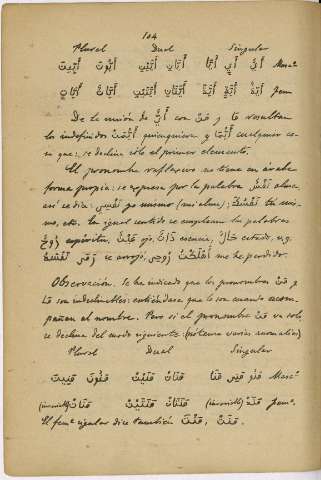 104
Plural Dual Singular
أَيُّونَ أَيِّينَ أَيَّانِ أَيَّيْنِ أَيٌّ أَيٍّ أَيًّا Masc.º
أَيَّاتٌ أَيَّاتٍ أَيَّتَانِ أَيَّتَيْنِ أَيَّةٌ أَيَّةٍ أَيَّةً fem.
De la unión de أَيُّ con مَنْ y مَا resultan
los indefinidos أَيُّمَنْ quienquiera y أَيُّمَا cualquier co-
sa que: se declina sólo el primer elemento.
El pronombre reflexivo no tiene en árabe
forma propia: se expresa por la palabra نَفْسٌ alma,
así se dice: نَفْسِي yo mismo (mi alma); نَفْسُكَ tú mis-
mo, etc. En igual sentido se emplean las palabras
رُوحٌ espíritu, عَيْنٌ ojo, ذَاتٌ esencia, حَالٌ estado, v.g.
se arrojó, رُوحِي me he perdido.
Observación. Se ha indicado que los pronombres مَنْ y
مَا son indeclinables: entiéndase que lo son cuando acom-
pañan al nombre. Pero si el pronombre مَنْ va solo,
se declina del modo siguiente: (no tiene varias anomalías)
Plural Dual Singular
مَنُونَ مَنِينَ مَنَانِ مَنَيْنِ مَنُو مَنِي مَنَا Masc.º
(invariable) مَنَاتْ مَنَتَانِ مَنَتَيْنِ (invariable) مَنَهْ fem.º
El fem.º singular dice también مَنَتْ, مَنْتْ.